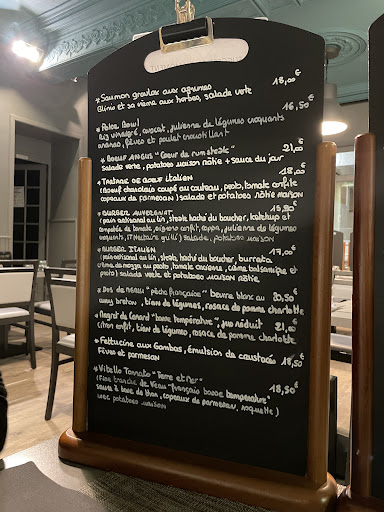 * Saumon gravlax aux agrumes 18,00€
Blinis et sa crème aux herbes, salade verte
* Poke Bowl 16,50€
Riz vinaigré, avocat, julienne de légumes croquants
ananas, fèves et poulet croustillant
* BOEUF ANGUS "Coeur de rumsteak" 21,00€
Salade verte, potatoes maison rôtie + sauce du jour
* TARTARE DE BOEUF italien 18,00€
(boeuf charolais coupé au couteau, pesto, tomate confite
copeaux de parmesan) salade et potatoes rôtie maison
* BURGER AUVERGNAT 16,90€
(pain artisanal au lin, steak haché du boucher, ketchup et
compotée de tomate, oignons confit, coppa, julienne de légumes
croquants, St Nectaire grillé) salade, potatoes maison
* BURGER ITALIEN 17,00€
(pain artisanal au lin, steak haché du boucher, burrata
crème de mozza au pesto, tomate ancienne, crème balsamique et
pesto) salade verte et potatoes maison rôtie
* Dos de "pêche française" beurre blanc au 20,50€
curry breton, bien de légumes, rosace de pomme charlotte
* Magret de Canard "basse température", jus réduit 21,00€
citron confit, bien de légumes, rosace de pomme charlotte
* Fettucine aux Gambas, émulsion de crustacés 18,50€
Fèves et parmesan
* Vitello Tomato "Terre et Mer" 18,50€
(Fine tranche de Veau français basse température"
sauce à base de thon, copeaux de parmesan, roquette)
avec potatoes maison